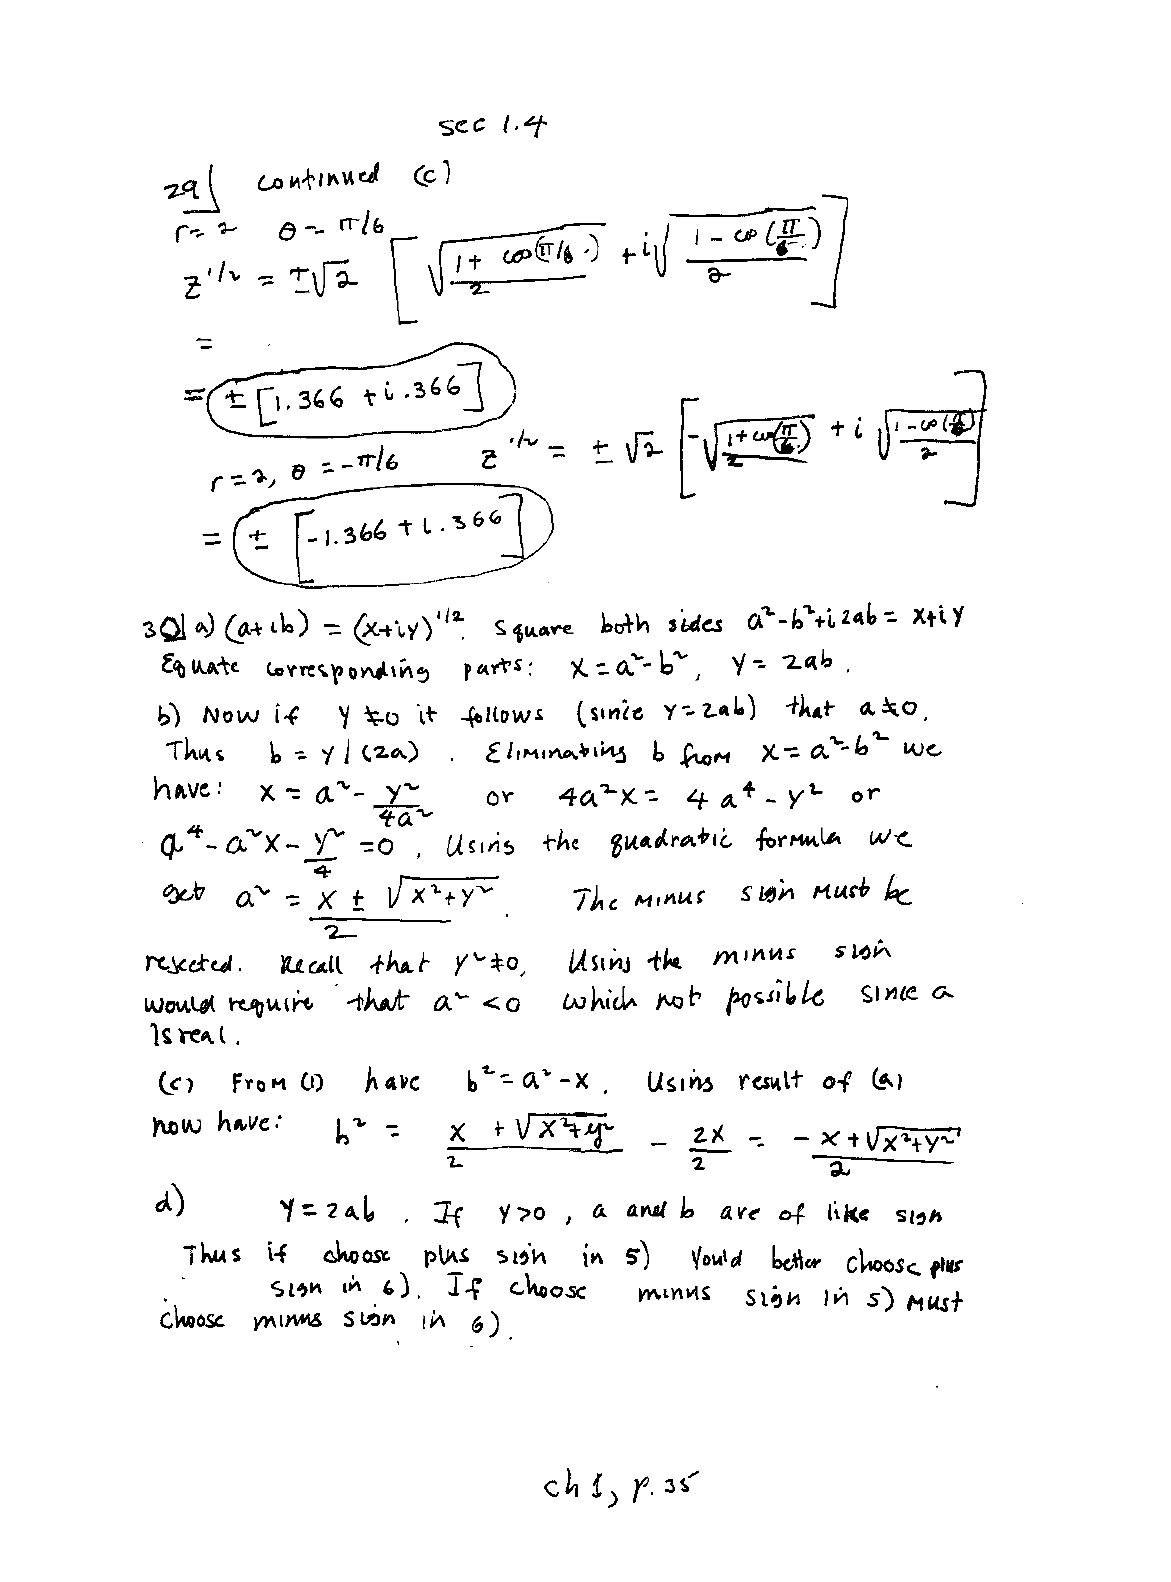 sec 1.4
29] continued (c)
r = 2 θ = π/6
z^1/2 = ±√2 [ √((1 + cos(π/6))/2) + i √((1 - cos(π/6))/2) ]
=
= ± [1.366 + i .366]
r = 2, θ = -π/6 z^1/2 = ± √2 [ -√((1 + cos(π/6))/2) + i √((1 - cos(π/6))/2) ]
= ± [-1.366 + i .366]
30] a) (a+ib) = (x+iy)^1/2. Square both sides a²-b²+i2ab = x+iy
Equate corresponding parts: x = a²-b², y = 2ab.
b) Now if y ≠ 0 it follows (since y = 2ab) that a ≠ 0.
Thus b = y/(2a). Eliminating b from x = a²-b² we
have: x = a² - y²/4a² or 4a²x = 4a⁴ - y² or
a⁴ - a²x - y²/4 = 0, Using the quadratic formula we
get a² = (x ± √(x²+y²))/2. The minus sign must be
rejected. Recall that y² ≠ 0, Using the minus sign
would require that a² < 0 which not possible since a
is real.
(c) From (1) have b² = a² - x. Using result of (a)
now have: b² = (x + √(x²+y²))/2 - 2x/2 = (-x + √(x²+y²))/2
d) y = 2ab. If y > 0, a and b are of like sign
Thus if choose plus sign in 5) You'd better choose plus
sign in 6). If choose minus sign in 5) must
choose minus sign in 6).
ch 1, p. 35